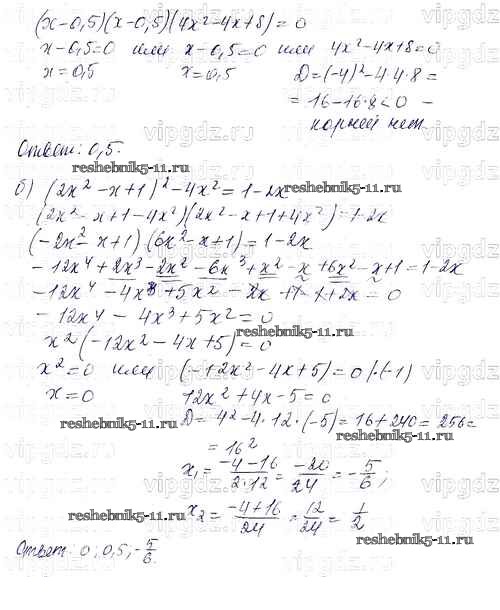 (x-0,5)(x-0,5)(4x²-4x+8)=0
x-0,5=0 или x-0,5=0 или 4x²-4x+8=0
x=0,5 x=0,5 D=(-4)²-4·4·8=
=16-16·8<0 -
корней нет
Ответ: 0,5.
reshebnik5-11.ru
б) (2x²-x+1)²-4x²=1-2x
(2x²-x+1-4x²)(2x²-x+1+4x²)=1-2x
(-2x²-x+1)(6x²-x+1)=1-2x
-12x⁴+2x³-2x²-6x³+x²-x+6x²-x+1=1-2x
-12x⁴-4x³+5x²-2x+1-1+2x=0
-12x⁴-4x³+5x²=0
x²(-12x²-4x+5)=0
reshebnik5-11.ru
x²=0 или (-12x²-4x+5)=0 |·(-1)
x=0 12x²+4x-5=0
reshebnik5-11.ru
D=4²-4·12·(-5)=16+240=256=
=16²
reshebnik5-11.ru
x₁=(-4-16)/(2·12)=-20/24=-5/6;
x₂=(-4+16)/24=12/24=1/2
reshebnik5-11.ru
reshebnik5-11.ru
Ответ: 0; 0,5; -5/6.